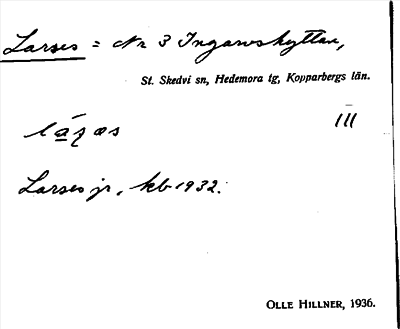 Larses = Nr 3 Ingarvshyttan,
St. Skedvi sn, Hedemora tg, Kopparbergs län.
III
Larses jr, kb 1932.
OLLE HILLNER, 1936.